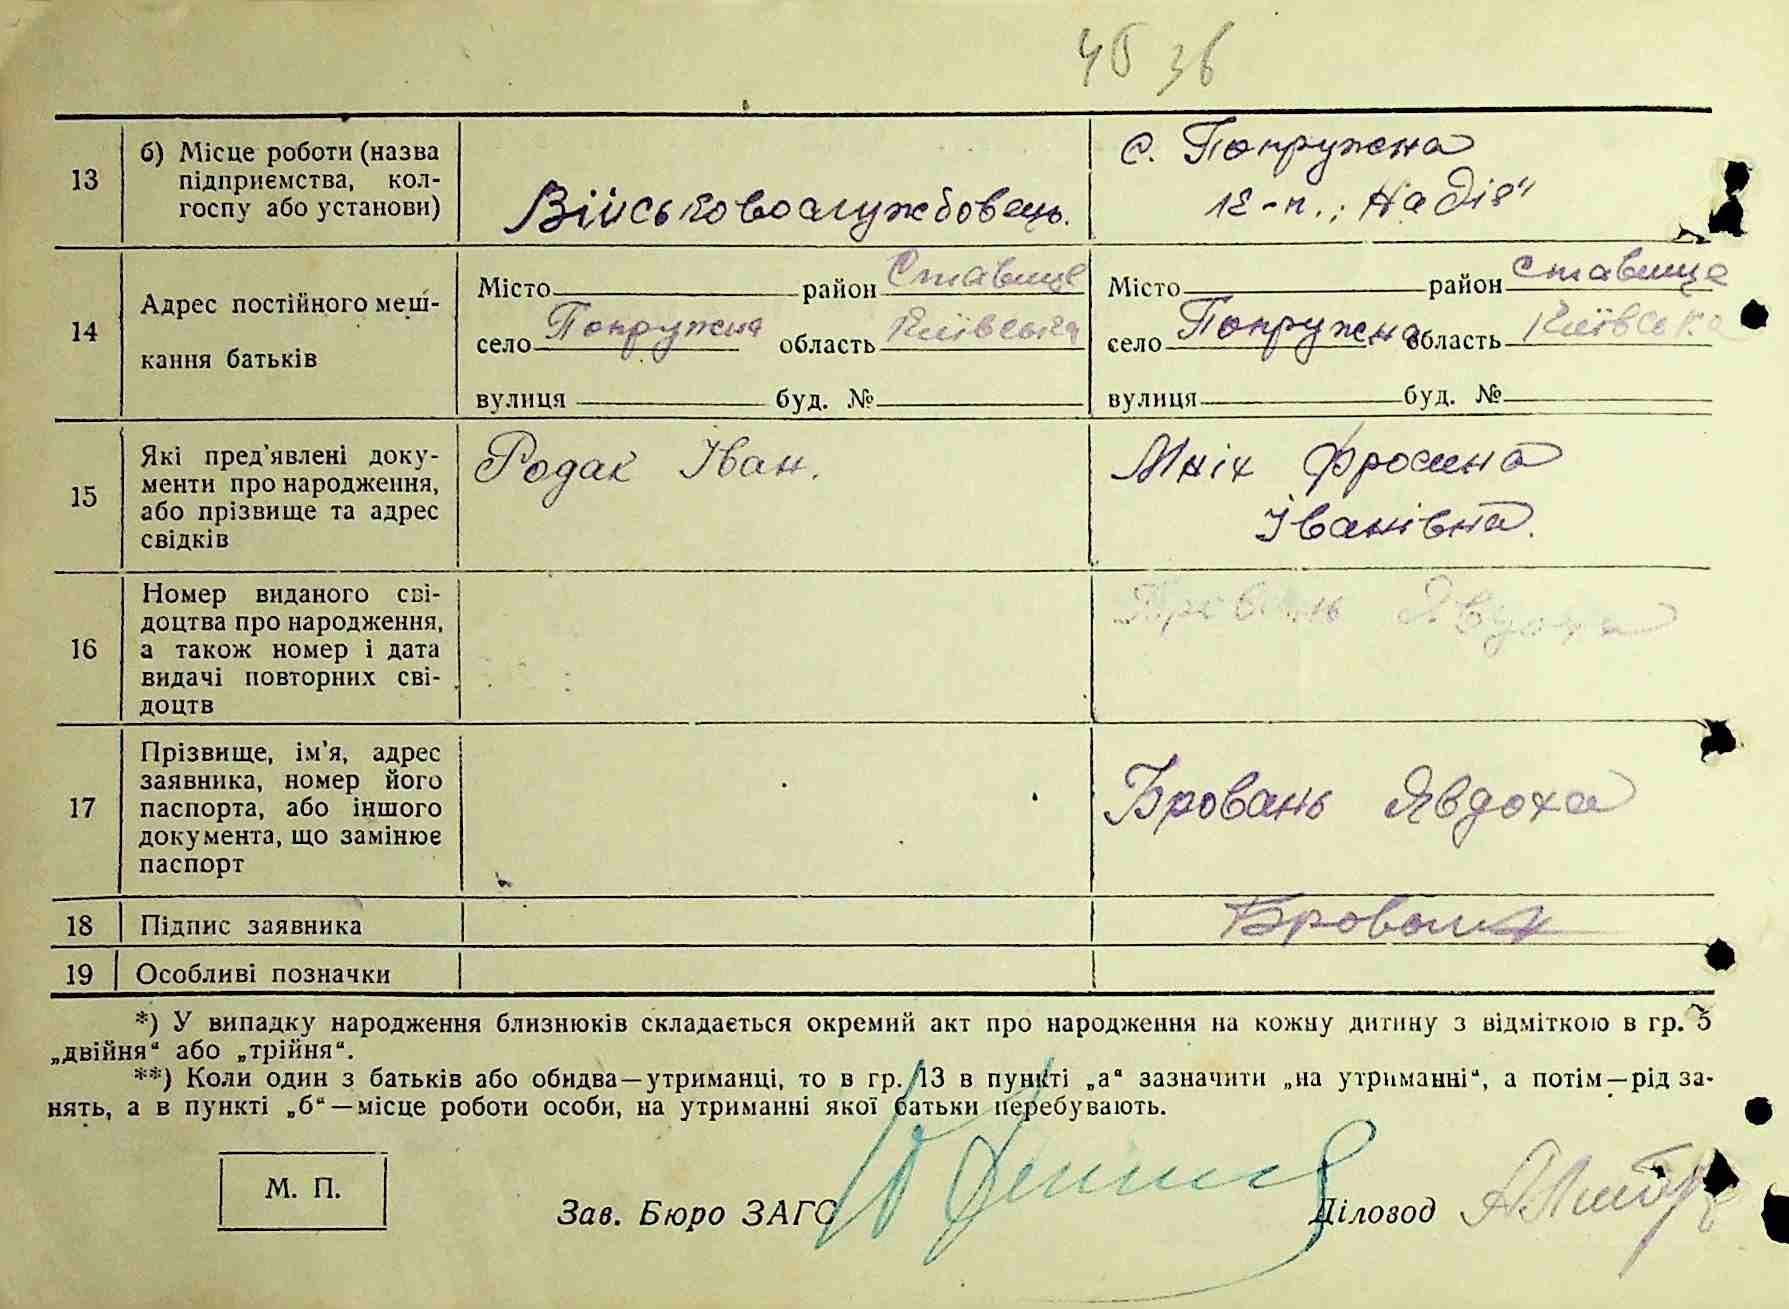 45 36
13
б) Місце роботи (назва
підприємства, кол-
госпу або установи)
Військовослужбовець.
с. Попружна
к-п. „Надія"
14
Адрес постійного меш-
кання батьків
Місто район Ставище
село Попружна область Київська
вулиця буд. №
Місто район Ставище
село Попружна область Київська
вулиця буд. №
15
Які пред'явлені доку-
менти про народження,
або прізвище та адрес
свідків
Родак Іван.
Мніх Фросина
Іванівна.
16
Номер виданого сві-
доцтва про народження,
а також номер і дата
видачі повторних сві-
доцтв
Бровань Явдоха
17
Прізвище, ім'я, адрес
заявника, номер його
паспорта, або іншого
документа, що замінює
паспорт
Бровань Явдоха
18 Підпис заявника
Бровань
19 Особливі позначки
*) У випадку народження близнюків складається окремий акт про народження на кожну дитину з відміткою в гр. 5
„двійня“ або „трійня“.
**) Коли один з батьків або обидва—утриманці, то в гр. 13 в пункті „а“ зазначити „на утриманні“, а потім—рід за-
нять, а в пункті „б“—місце роботи особи, на утриманні якої батьки перебувають.
М. П.
Зав. Бюро ЗАГС
Діловод